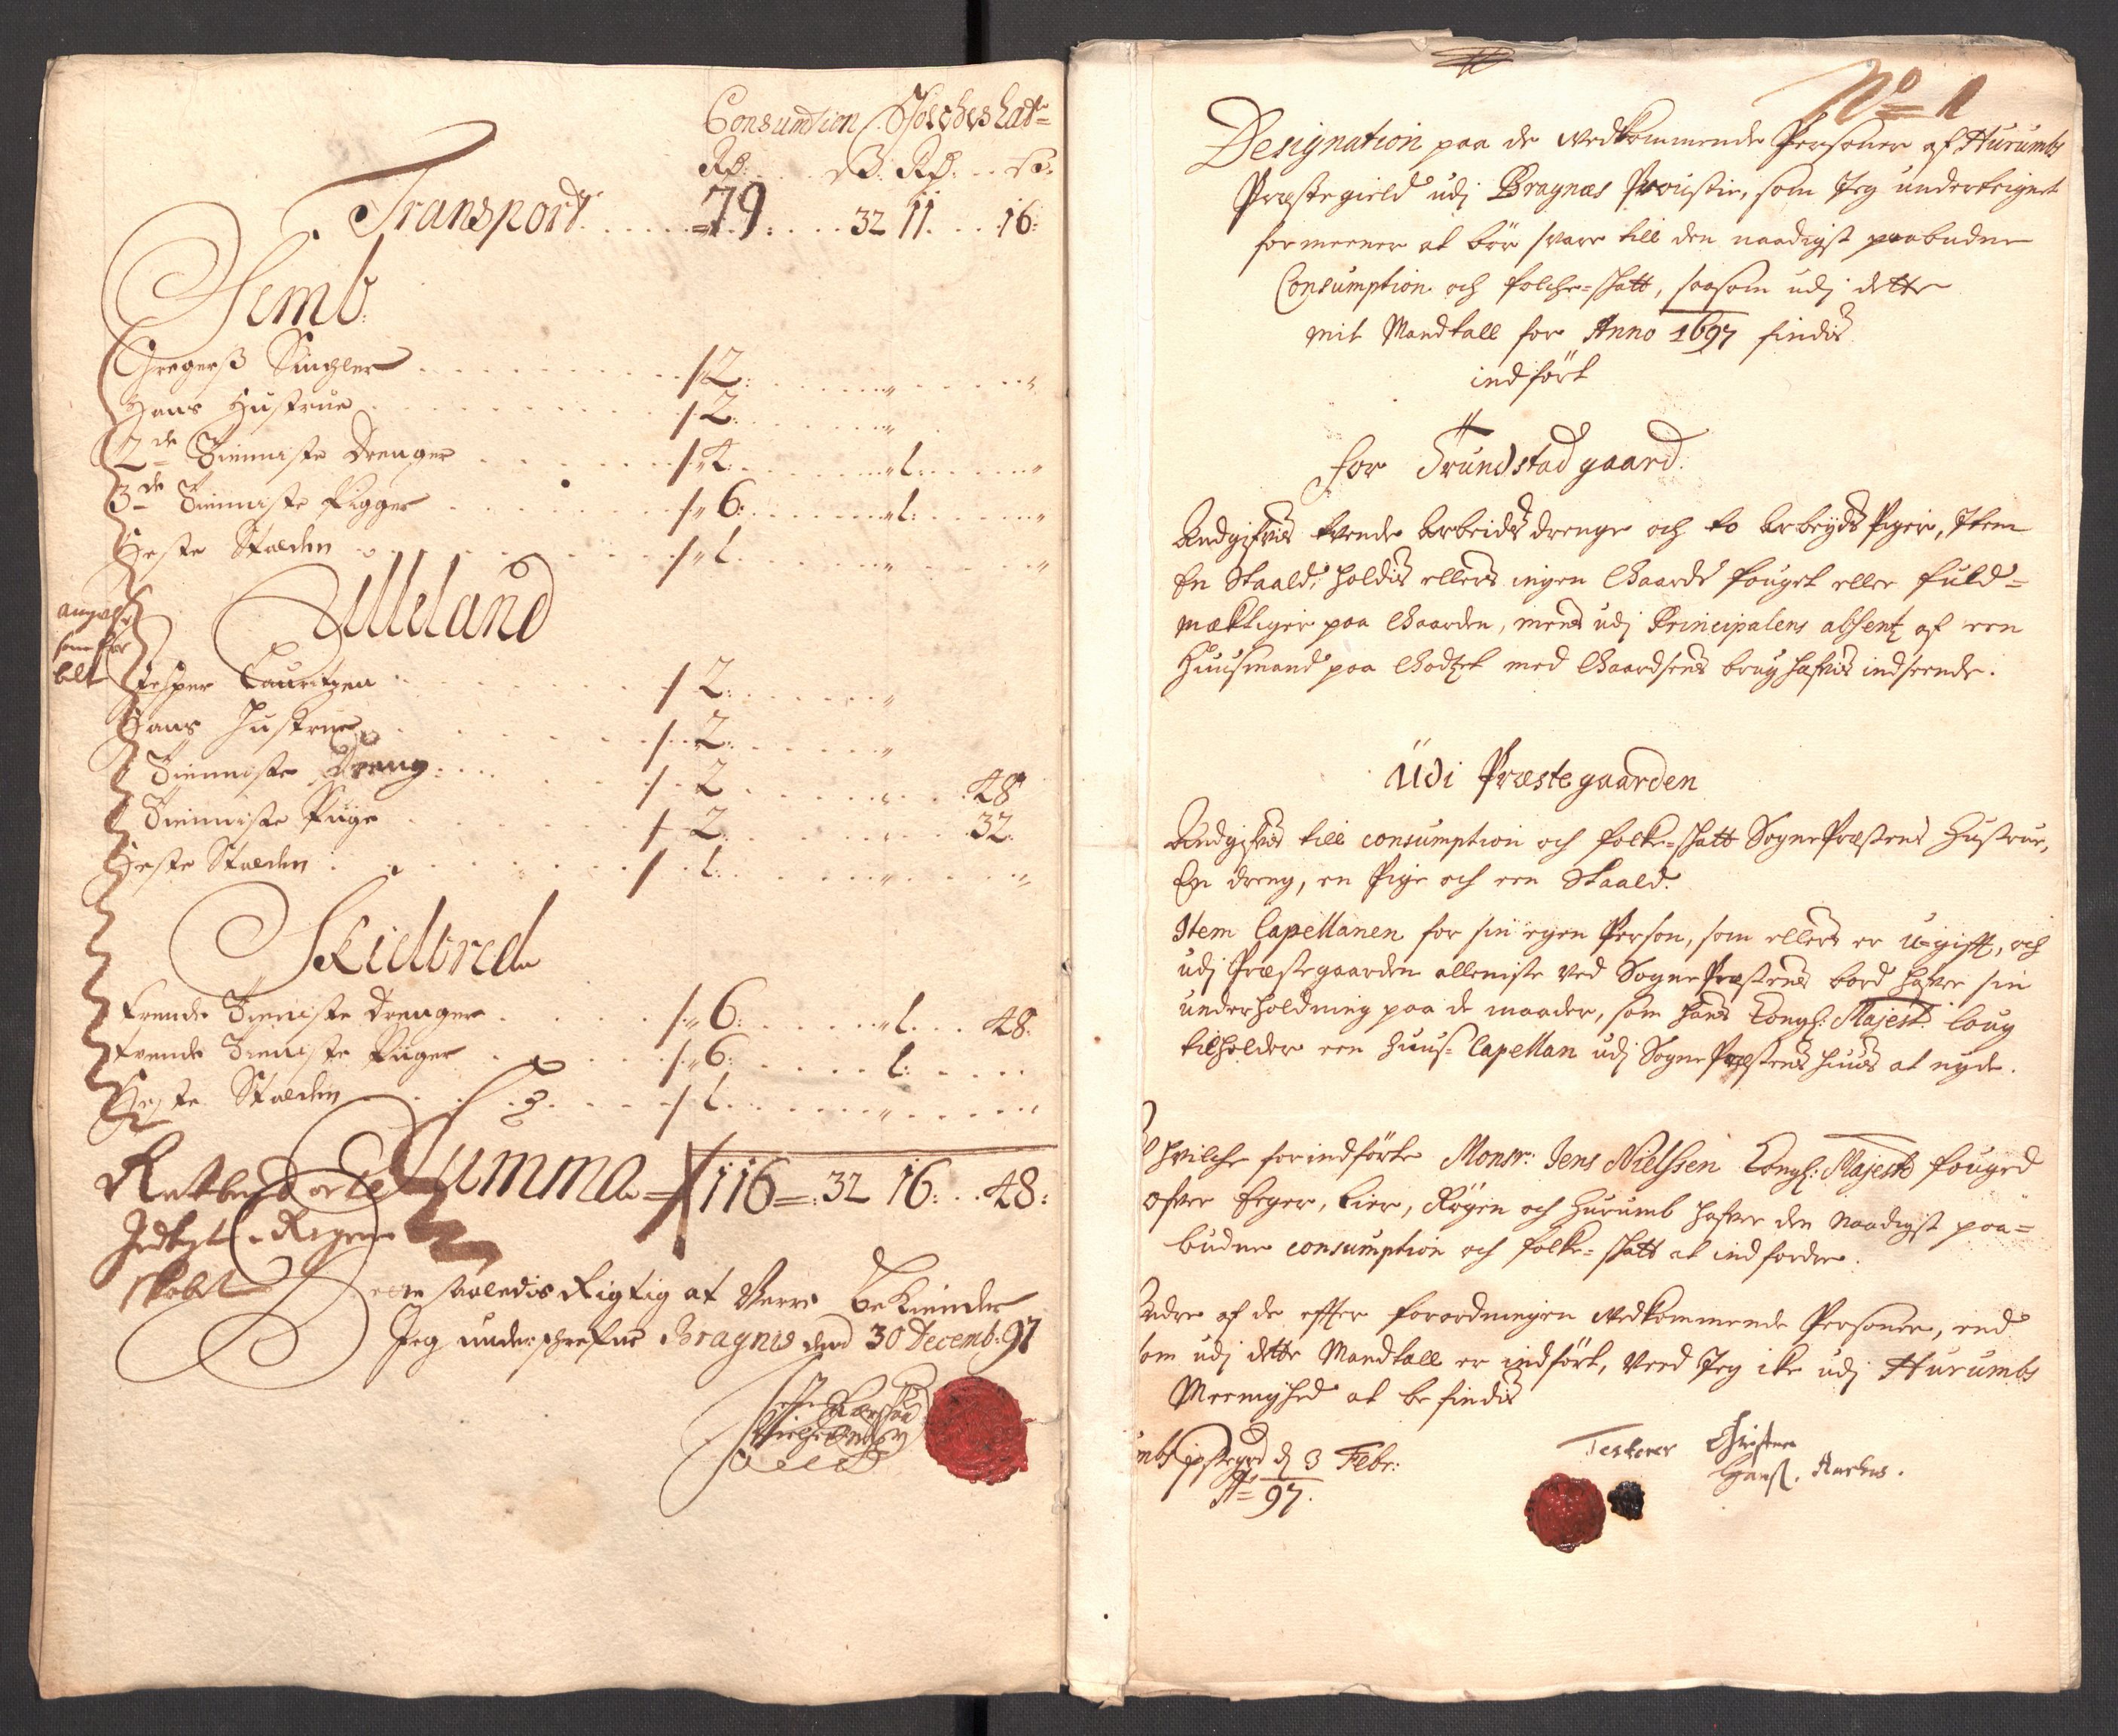 Consumtion Folcheskat
Rd: ß: Rd: ß:
Transport 79 32 11 16:
Semb
Gregerß Sinchler 2: " "
Hans Hustrue 2: "
2de Tienniste Drenger 4: 1: "
3de Tienniste Pigger 6: 1: "
Heste Stalden 1 " "
Ulleland
som for
Jesper Lauritzen 2: "
Hans Hustrue 2: "
Tienniste Dreng 2 " 48
Tienniste Piige 2: " 32
Heste Stalden 1: " "
Skielbred
Trende Tieniste Drenger 6: 1: 48:
Tvende Tieniste Piiger 6: 1:
Heste Stalden 1 "
Summa 116 32 16: 48:
saaledis Rigtig at Verre bekiender
Jeg underschrefne Bragnis dend 30 Decemb: 97
No 1
Designation paa de vedkommende Personer af Hurumbs
Præstegield udj Bragnæs Provstie, som Jeg underteignet
formeener at bör svare till den naadigst paabudne
Consumption och folche-skatt, saasom udj dette
mit Mandtall for Anno 1697 findis
indfört
for Trundstad gaard.
Andgifvis tvende Arbeids drenge och to Arbeyds Piger, Item
En Staald, holdis ellers ingen Gaards fouget eller fuld-
mæktiger paa Gaarden, mens udj Principalens absentz af een
Huusmand paa Godtzet med Gaardsens brug hafvis indseende.
Udi Præstegaarden
Andgifvis till consumption och folke-skatt SognePræstens Hustrue,
En dreng, en Pige och een Staald.
Item Capellanen for sin egen Person, som ellers er u-gift, och
udj Præstegaarden alleniste ved SognePræstens bord hafver sin
underholdning paa de maader, som hans Kongl: Majest: loug
tilholder een Huus-Capellan udj SognePræstens huus at nyde.
hvilche forindförte Monsr: Jens Nielssen Kongl: Majests fouged
ofver Eger, Lier, Röyen och Hurumb hafver den Naadigst paa-
budne consumption och folke-skatt at indfordre.
Andre af de efter forordningen vedkommende Personer, end
som udj dette Mandtall er indfört, veed Jeg ike udj Hurumbs
Meenighed at befindis
d 3 Febr:
Ao 97.
Testerer Christen
Hanß. Aarhus.